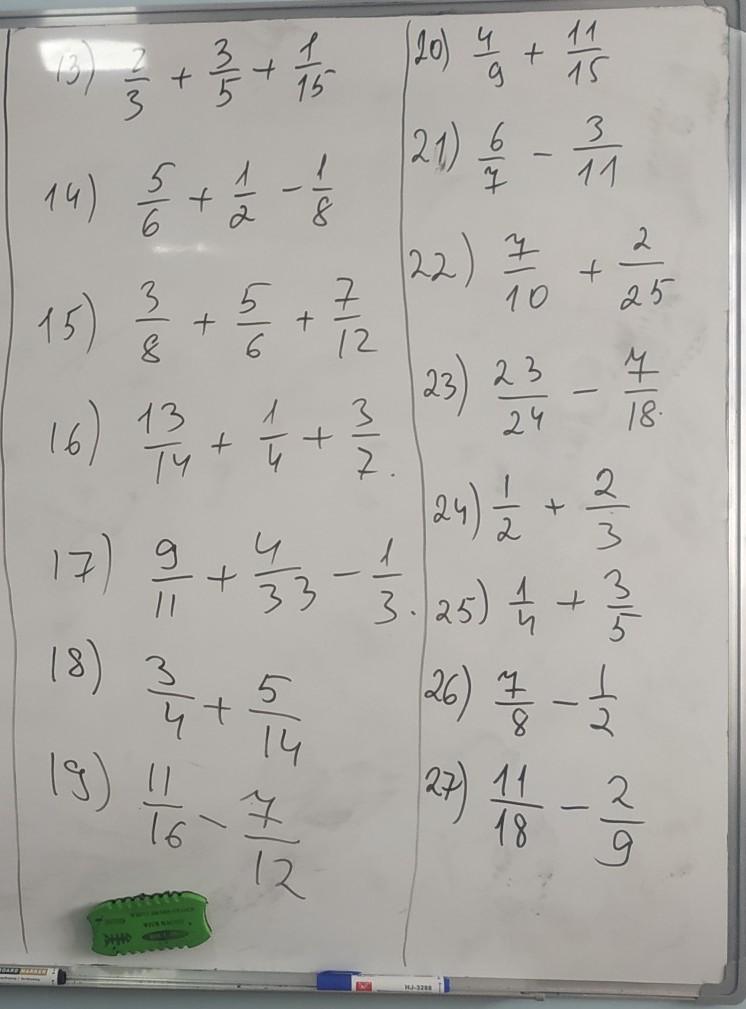 13) 2/3 + 3/5 + 1/15
14) 5/6 + 1/2 - 1/8
15) 3/8 + 5/6 + 7/12
16) 13/14 + 1/4 + 3/7.
17) 9/11 + 4/33 - 1/3.
18) 3/4 + 5/14
19) 11/16 - 7/12
20) 4/9 + 11/15
21) 6/7 - 3/11
22) 7/10 + 2/25
23) 23/24 - 7/18.
24) 1/2 + 2/3
25) 1/4 + 3/5
26) 7/8 - 1/2
27) 11/18 - 2/9
BOARD MARKER
HJ-3288